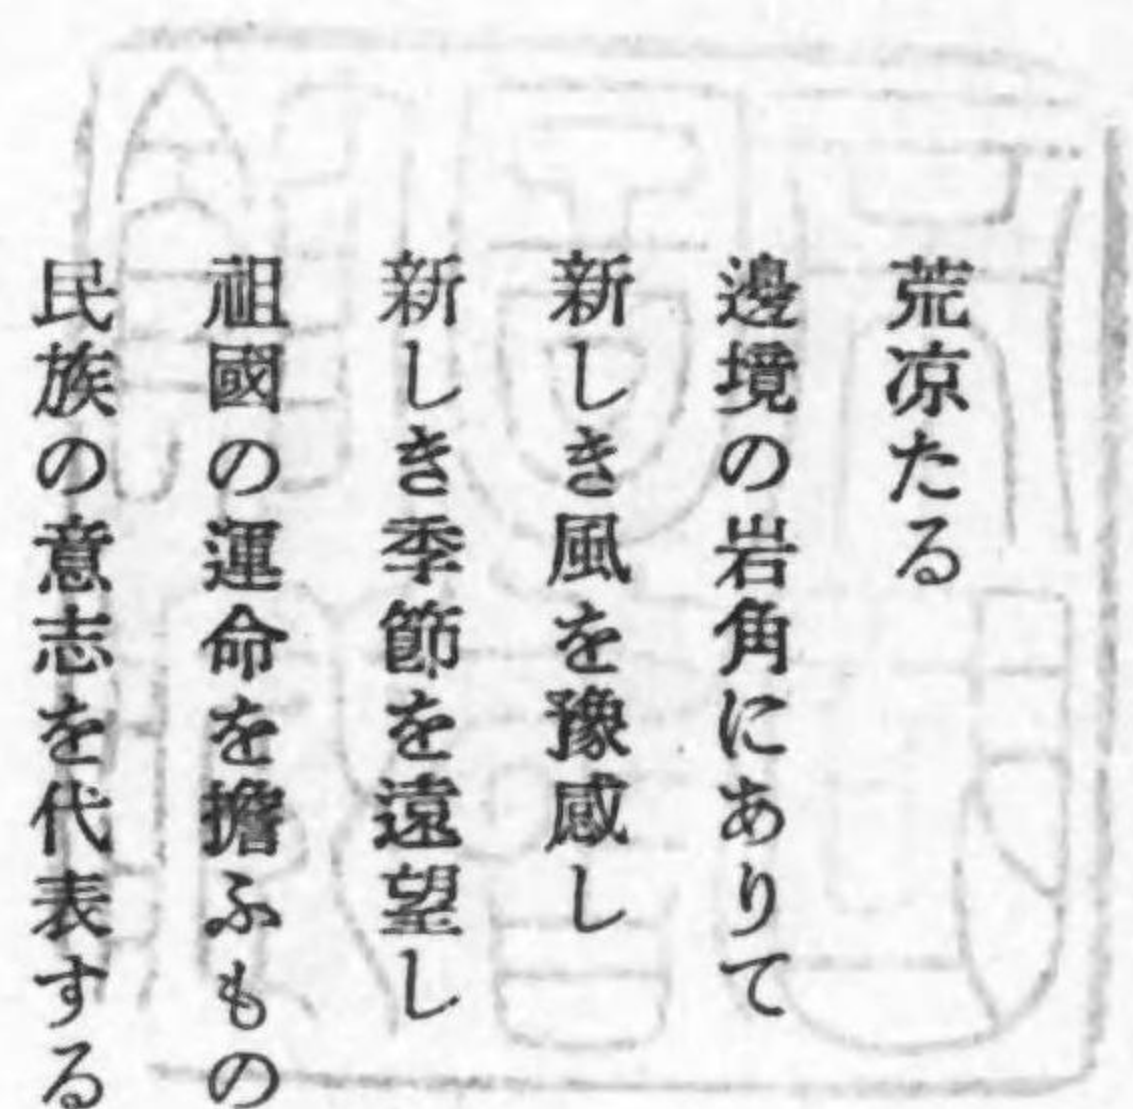 荒凉たる
邊境の岩角にありて
新しき風を豫感し
新しき季節を遠望し
祖國の運命を擔ふもの
民族の意志を代表する